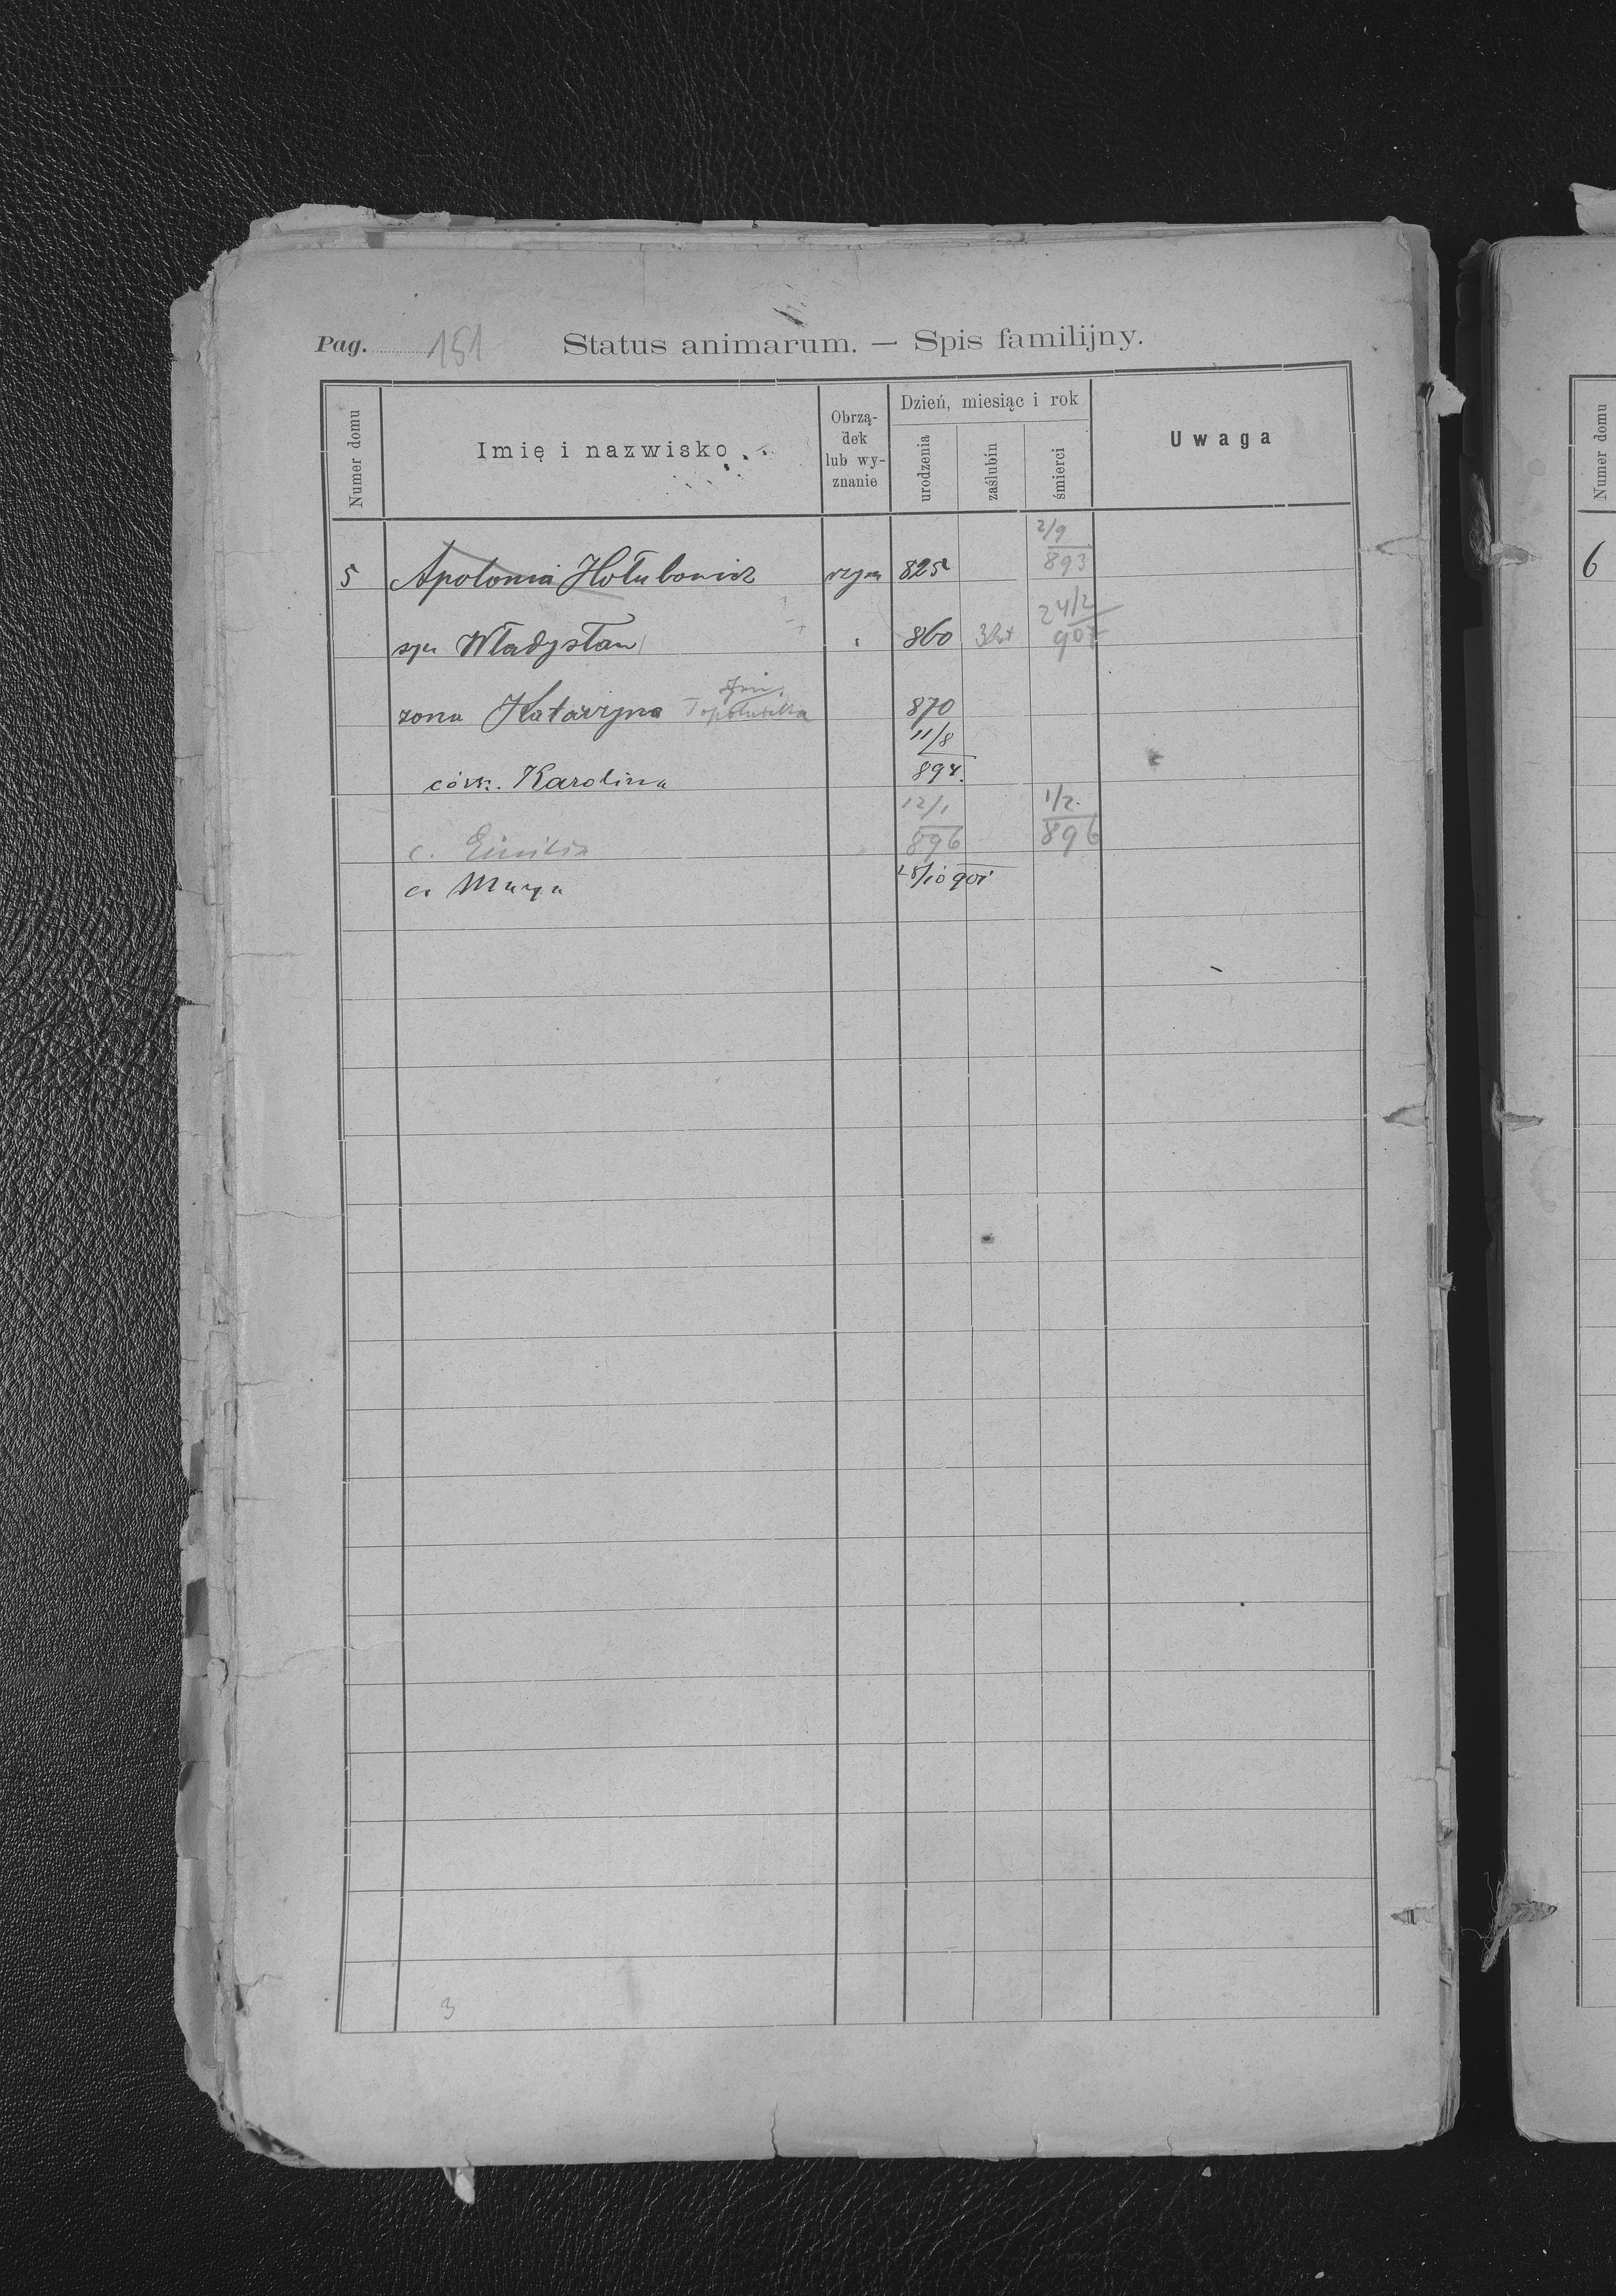 Pag. 151 Status animarum. — Spis familijny.
Numer domu
Imię i nazwisko
Obrzą-
dek
lub wy-
znanie
Dzień, miesiąc i rok
urodzenia
zaślubin
śmierci
Uwaga
Numer domu
2/9
5 Apolonia Hołubowicz rzym 825 893
24/2
syn Władysław 860
żona Katarzyna 870
11/8
córk. Karolina 894.
12/1 1/2.
c. Emilia 896 896
c. Marya /10 901
6
3